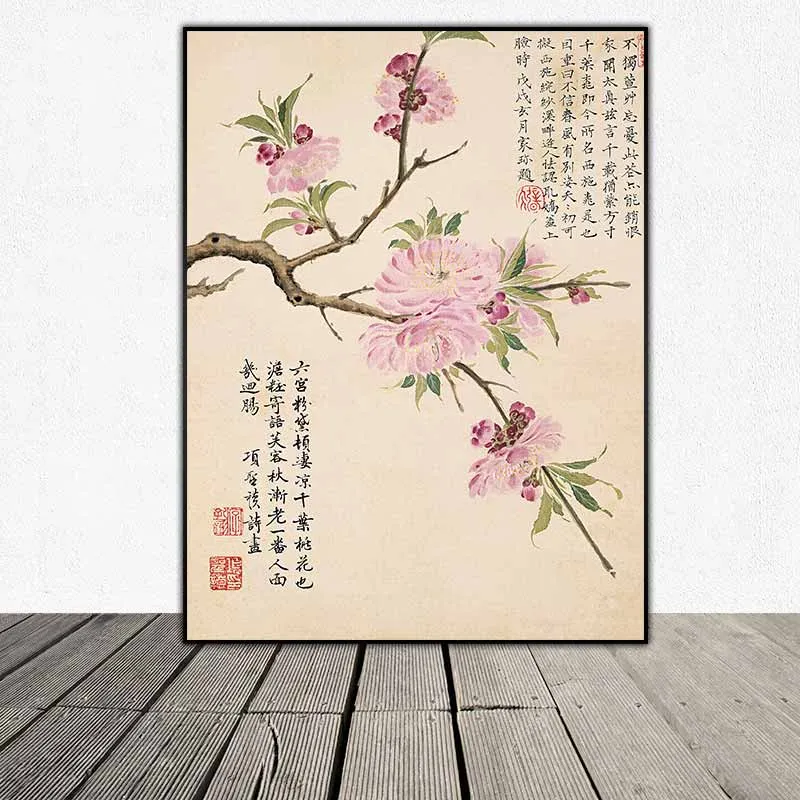 不獨萱艸忘憂此花亦能銷恨
太真茲言千載猶縈方寸
千葉桃即今所名西施桃是也
因重曰不信春風有別姿夭〻初可
擬西施浣紗溪畔逢人怯認嬌盈上
臉時 戊戌玄月家珍題
六宮粉黛頓凄凉千葉桃花也
澹粧寄語芙容秋漸老一番人面
幾迴腸
項聖謨詩畫